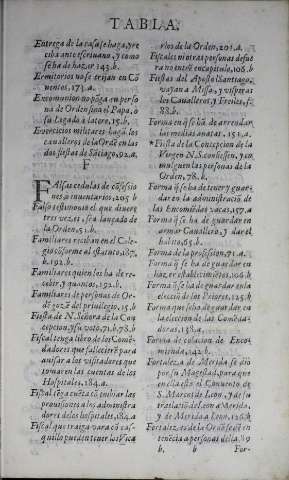 TABLA.
Entrega de la casa se haga, y re
ciba ante escriuano, y como
se ha de hazer. 143. b.
Ermitorios no se erijan en Có
uentos, 173. a.
Excomunion no póga en perso
na de Orden sino el Papa, ó
su Legado à latere, 15. b.
Exercicios militares hagá los
caualleros de la Ordé en las
dos fiestas de Santiago, 92. a.
F
Falsas cedulas de cófesio
nes, ò inuentarios, 205 b
Falso testimonio el que diere
tres vezes, sea lançado de
la Orden, 51. b.
Familiares reciban en el Cole
gio cóforme al estatuto, 187.
b. 192. b.
Familiares quien los ha de re-
cebir, y quantos, 192. b.
Familiares de personas de Or-
dé gozá del priuilegio, 15. b
Fiesta de N. Señora de la Con
cepcion, y su voto, 71. b. 78. b
Fiscal tenga libro de los Come-
dadores que fallecieré para
auisar a los visitadores que
toman las cuentas de los
Hospitales, 184. a.
Fiscal téga cuéta có embiar las
prouisiones a los administra
dores de los hospitales, 184. a
Fiscal que traiga vara có cas-
quillo puedé tener los Vica
rios de la Orden, 201. a.
Fiscales ni otras personas de fue
ra no entré en capitulo, 106. b
Fiestas del Apostol Santiago,
vayan a Missa, y visperas
los Caualleros, y Freiles, f.
88. b.
Forma en q̃ se há de arrendar
las medias anatas, 151. a.
* Fiesta de la Concepcion de la
Virgen N. S. confiessen, y co
mulguen las personas de la
Orden, 78. b.
Forma q̃ se ha de tener y guar-
dar en la administració de
las Encomiédas vacas, 157. a
Forma q̃ se ha de guardar en
armar Cauallero, y dar el
habito, 65. b.
Forma de la profession, 71. a.
Forma q̃ se ha de guardar en
hazer establecimiétos, 106. b
Forma q̃ se ha de guardar en la
elecció de los Priores, 125. b
Forma que se ha de guardar en
la eleccion de los Coméda-
dores, 138. a.
Forma de colacion de Enco-
mienda, 142. b.
Fortaleza de Merida se dio
por su Magestad, para que
en ella esté el Conuento de
S. Marcos de Leon, y de su
traslació del Leon a Merida,
y de Merida a Leon, 126. b.
Fortalezas de la Ordé q̃ esté en
tenécia a personas della, 89
b. b For-